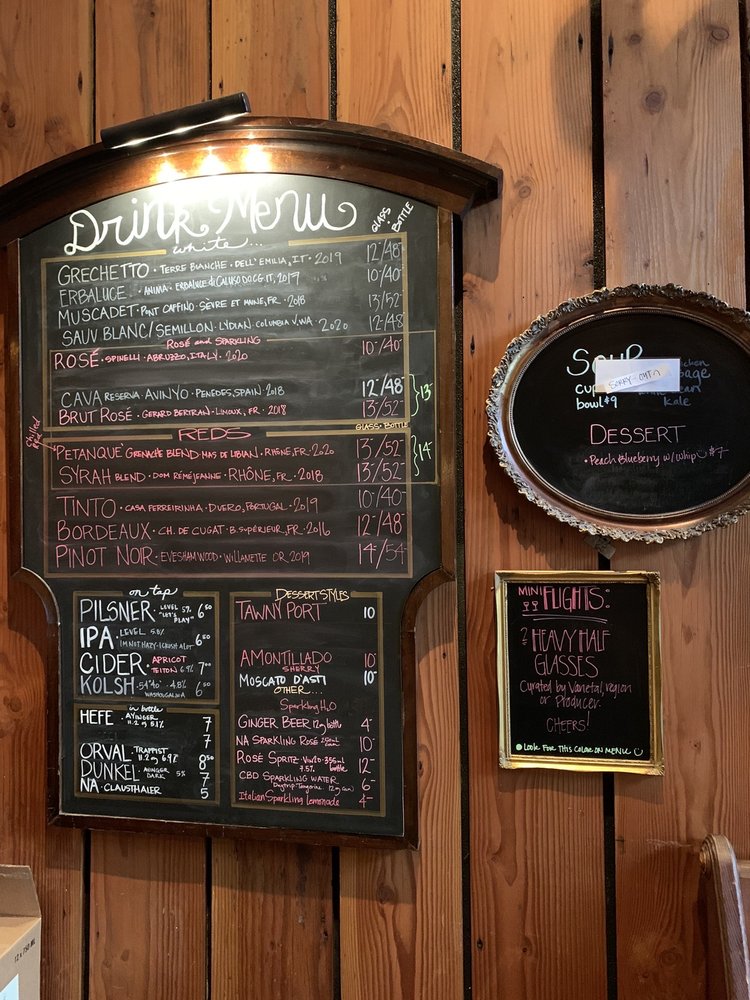 Drink Menu
GLASS • BOTTLE
white...
GRECHETTO • TERRE BIANCHE • DELL'EMILIA, IT • 2019 12-/48-
ERBALUCE • ANIMA • ERBALUCE di CALUSO DOCG • IT, 2017 10-/40-
MUSCADET • PONT CAFFINO • SÈVRE ET MAINE, FR • 2018 13/52-
SAUV BLANC/SEMILLON • LYDIAN • COLUMBIA V, WA • 2020 12-/48-
ROSÉ and SPARKLING
ROSÉ • SPINELLI • ABRUZZO, ITALY • 2020 10-/40-
CAVA RESERVA • AVINYO • PENEDES, SPAIN 2018 12-/48-
BRUT ROSÉ • GERARD BERTRAN • LIMOUX, FR • 2018 13/52-
13-
GLASS • BOTTLE
REDS
Chilled Red
"PETANQUE" GRENACHE BLEND MAS DE LIBIAN • RHÔNE, FR • 2020 13/52-
SYRAH BLEND • DOM RÉMÉJEANNE • RHÔNE, FR • 2018 13/52-
14-
TINTO • CASA FERREIRINHA • DUERO, PORTUGAL • 2019 10-/40-
BORDEAUX • CH. DE CUGAT • B. SUPÉRIEUR, FR • 2016 12-/48-
PINOT NOIR • EVESHAM WOOD • WILLAMETTE OR 2019 14/54-
on tap
PILSNER • LEVEL 5% "LET'S PLAY" 6 50
IPA • LEVEL 5.0% I'M NOT HAZY-I 6 50
CIDER • APRICOT TEITON 6.9% 7 00
KOLSH • 54°40° • 4.8% WASHOUGAL WA 6 50
in bottle
HEFE • AYINGER 11.2 oz 5.1% 7
7
ORVAL • TRAPPIST 11.2 oz 6.9% 8 50
DUNKEL • AYINGER DARK 5% 7
NA • CLAUSTHALER 5
DESSERT STYLES
TAWNY PORT 10
AMONTILLADO SHERRY 10-
MOSCATO D'ASTI 10-
OTHER...
Sparkling H₂O
GINGER BEER 12 oz bottle 4-
NA SPARKLING ROSÉ 250ml can 10-
ROSÉ SPRITZ • 355ml bottle 7.5% 12-
CBD SPARKLING WATER 6-
Daytrip-Tangerine (12 oz can)
Italian Sparkling Lemonade 4-
SOUP
cup
bowl $9
SORRY-OUTA
kale
DESSERT
• Peach Blueberry w/ Whip $7
MINI FLIGHTS:
2 HEAVY HALF
GLASSES
Curated by Varietal, region
or Producer.
CHEERS!
LOOK FOR THIS COLOR ON MENU
12 x 750 ML